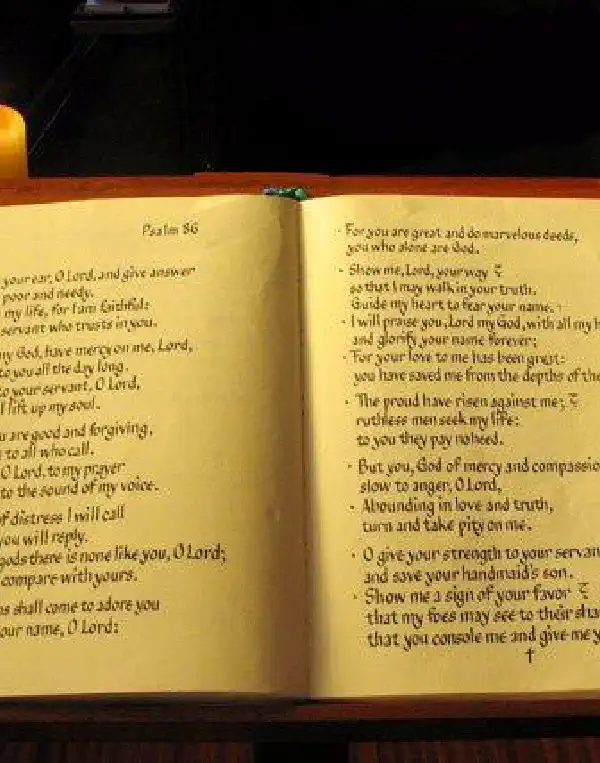 Psalm 86
your ear, O Lord, and give answer
poor and needy.
my life, for I am faithful:
servant who trusts in you.
my God, have mercy on me, Lord,
to you all the day long.
to your servant, O Lord,
I lift up my soul.
u are good and forgiving,
to all who call.
O Lord, to my prayer
to the sound of my voice.
of distress I will call
you will reply.
gods there is none like you, O Lord;
compare with yours.
ns shall come to adore you
our name, O Lord:
· For you are great and do marvelous deeds,
you who alone are God.
· Show me, Lord, your way
so that I may walk in your truth.
Guide my heart to fear your name.
· I will praise you, Lord my God, with all my h
and glorify your name forever;
· For your love to me has been great:
you have saved me from the depths of the
· The proud have risen against me;
ruthless men seek my life:
to you they pay no heed.
· But you, God of mercy and compassio
slow to anger, O Lord,
· Abounding in love and truth,
turn and take pity on me.
· O give your strength to your servan
and save your handmaid's son.
· Show me a sign of your favor
that my foes may see to their sha
that you console me and give me y
†